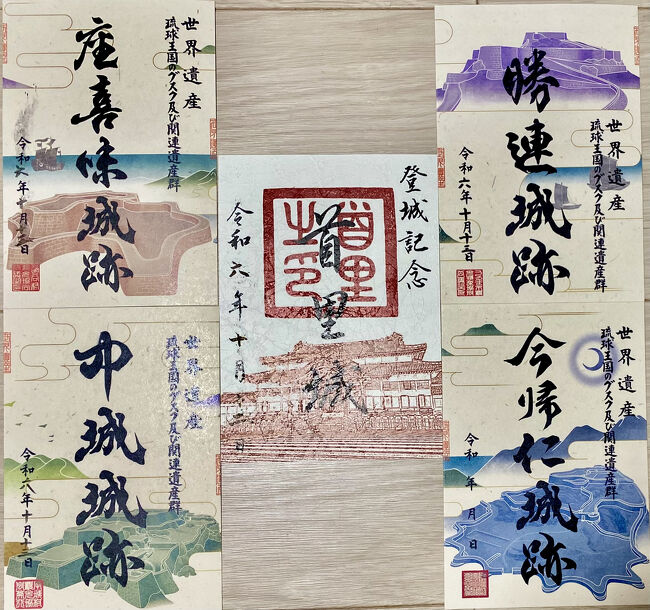 世界遺産
琉球王国のグスク及び関連遺産群
座喜味城跡
令和六年 月 日
登城記念
首里之印
首里城
令和六年十月 日
世界遺産
琉球王国のグスク及び関連遺産群
勝連城跡
令和六年十月十三日
世界遺産
琉球王国のグスク及び関連遺産群
中城城跡
令和六年十月 日
世界遺産
琉球王国のグスク及び関連遺産群
今帰仁城跡
令和 年 月 日